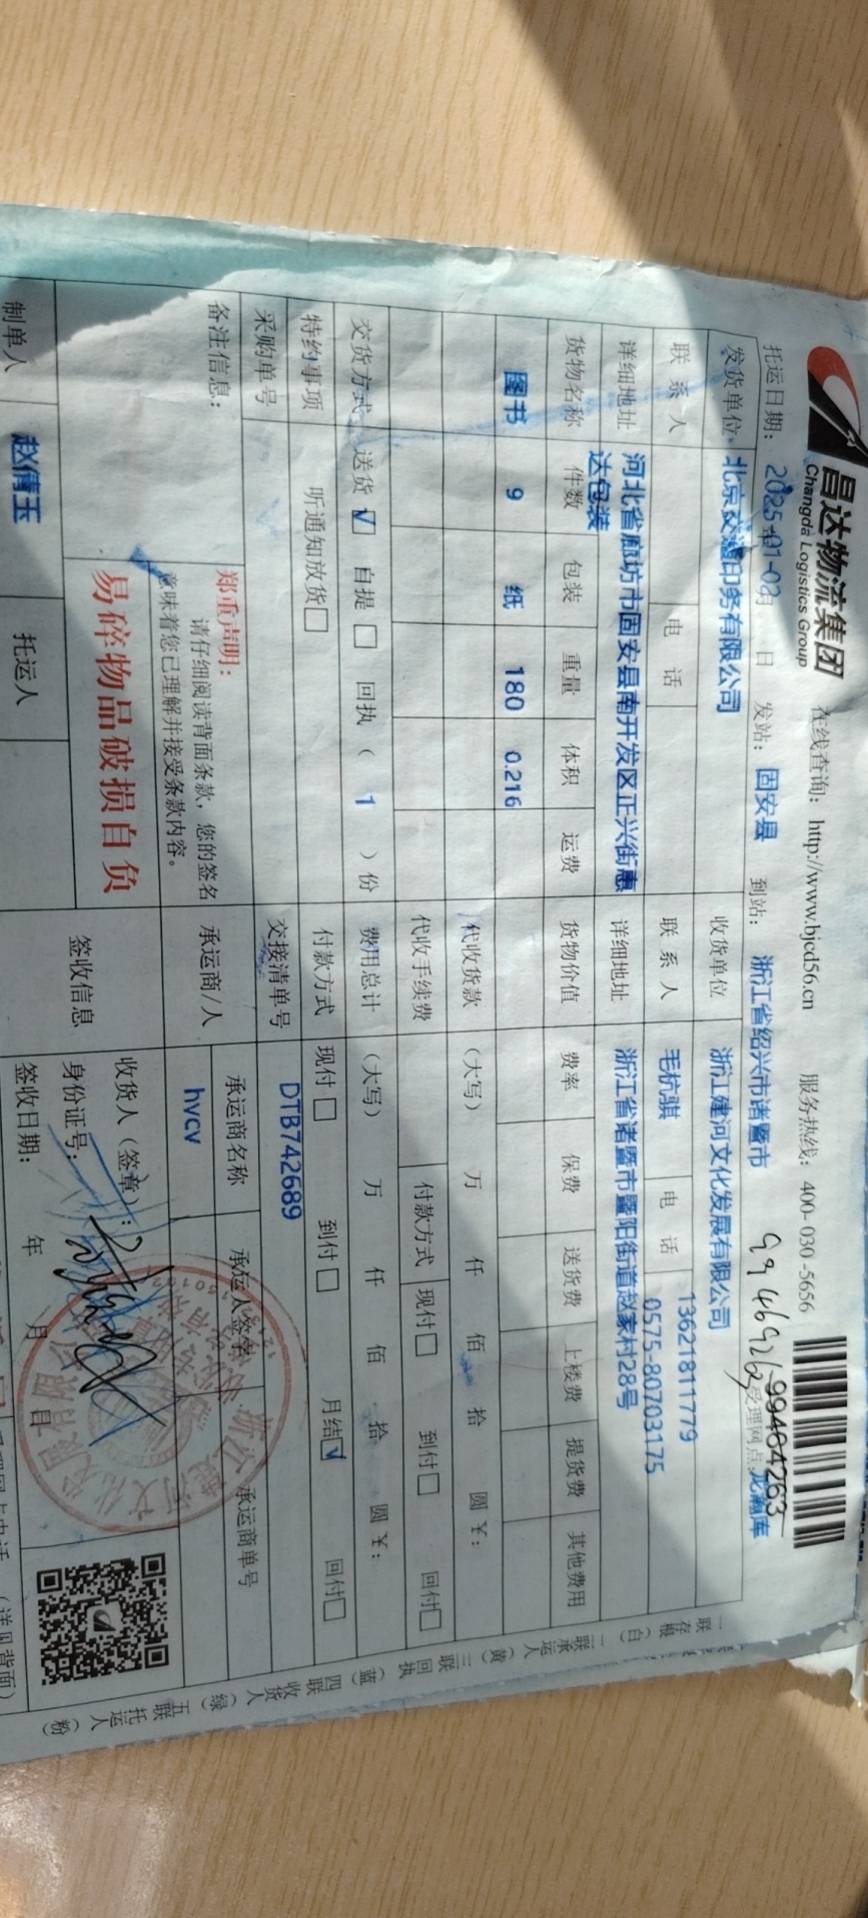 昌达物流集团
Changda Logistics Group
在线查询：http://www.bjcd56.cn
服务热线：400-030-5656
托运日期：2025-01-02
发站：固安县
到站：浙江省绍兴市诸暨市
99404263
受理网点：
发货单位
收货单位 浙江建河文化发展有限公司
联系人
电话
联系人 毛杭骐
电话 13621811779
0575-80703175
详细地址 河北省廊坊市固安县南开发区正兴街惠
达包装
详细地址 浙江省诸暨市暨阳街道赵家村28号
货物名称 件数 包装 重量 体积 运费 货物价值 费率 保费 送货费 上楼费 提货费 其他费用
图书 9 纸 180 0.216
代收货款 （大写） 万 仟 佰 拾 圆 ¥：
代收手续费 付款方式 现付□ 到付□ 回付□
交货方式 送货☑ 自提□ 回执（1）份
费用总计 （大写） 万 仟 佰 拾 圆 ¥：
特约事项 听通知放货□
付款方式 现付□ 到付□ 月结☑ 回付□
采购单号
交接清单号 DTB742689
备注信息：
郑重声明：
请仔细阅读背面条款，您的签名
意味着您已理解并接受条款内容。
易碎物品破损自负
承运商/人 承运商名称 承运人签字 承运商单号
hvcv
签收信息
收货人（签章）：
身份证号：
签收日期： 年 月 日
制单人 赵倩玉
托运人
（详见背面）
一联存根（白） 二联承运人（黄） 三联回执（蓝） 四联收货人（绿） 五联托运人（粉）